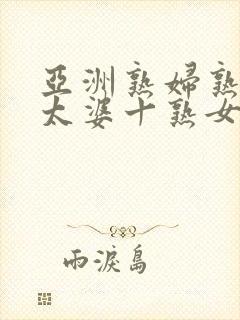 亞洲熟婦熟
太婆十熟女
雨淚島